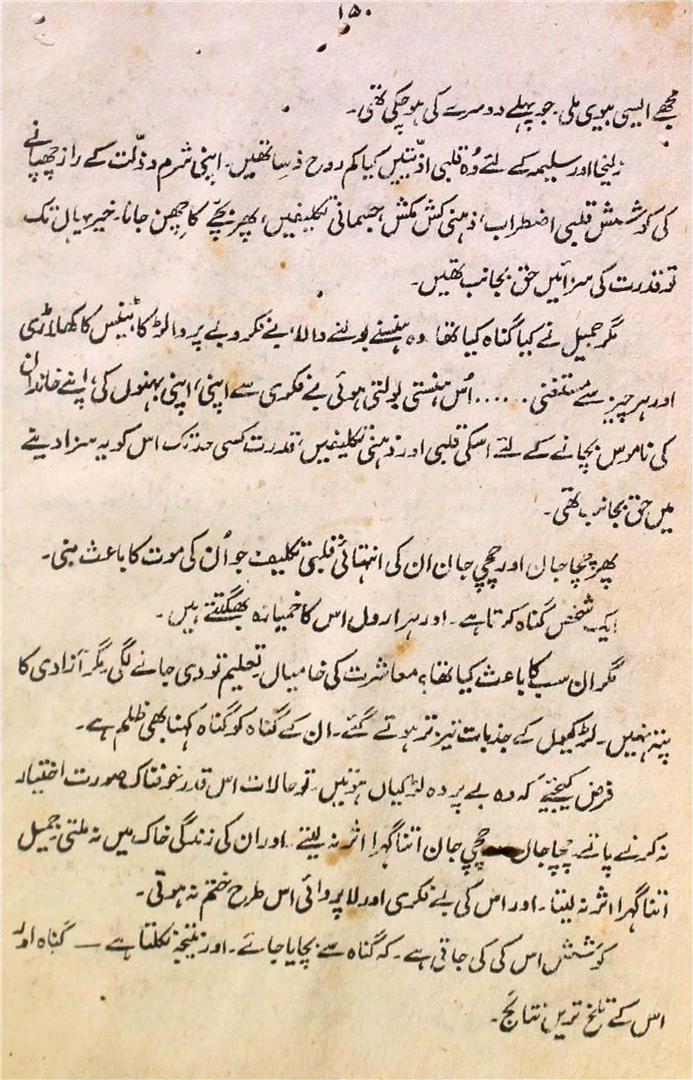 ۱۵۰
مجھے ایسی بیوی ملی۔ جو پہلے دوسرے کی ہو چکی تھی۔
زلیخا اور سلیمہ کے لئے وُہ قلبی اذیتیں کیا کم روح فرسا تھیں۔ اپنی شرم و ذلّت کے راز چھپانے
کی کوشش قلبی اضطراب، ذہنی کش مکش، جسمانی تکلیفیں، پھر بچّے کا چھن جانا۔ خیر یہاں تک
تو قدرت کی سزائیں حق بجانب تھیں۔
مگر جمیل نے کیا گناہ کیا تھا وہ ہنسنے بولنے والا، بے فکر و بے پروا لڑکا، ٹینس کا کھلاڑی
اور ہر چیز سے مستغنی ...... اُس ہنستی بولتی ہوئی بے فکری سے اپنی، اپنی بہنوں کی، اپنے خاندان
کی ناموس بچانے کے لئے اسکی قلبی اور ذہنی تکلیفیں، قدرت کسی حد تک اس کو یہ سزا دینے
میں حق بجانب تھی۔
پھر چچا جان اور چچی جان ان کی انتہائی قلبی تکلیف جو اُن کی موت کا باعث بنی۔
ایک شخص گناہ کرتا ہے۔ اور ہزاروں اس کا خمیازہ بھگتتے ہیں۔
مگر ان سب کا باعث کیا تھا؟ معاشرت کی خامیاں۔ تعلیم تو دی جانے لگی مگر آزادی کا
پتہ نہیں۔ لڑکیوں کے جذبات تیز تر ہوتے گئے۔ ان کے گناہ کو گناہ کہنا بھی ظلم ہے۔
فرض کیجئے کہ وہ بے پردہ لڑکیاں ہوتیں۔ تو حالات اس قدر خوفناک صورت اختیار
نہ کرنے پاتے۔ چچا جان چچی جان اتنا گہرا اثر نہ لیتے۔ اور ان کی زندگی خاک میں نہ ملتی۔ جمیل
اتنا گہرا اثر نہ لیتا۔ اور اس کی بے فکری اور لاپروائی اس طرح ختم نہ ہوتی۔
کوشش اس کی کی جاتی ہے۔ کہ گناہ سے بچایا جائے۔ اور نتیجہ نکلتا ہے — گناہ اور
اس کے تلخ ترین نتائج۔